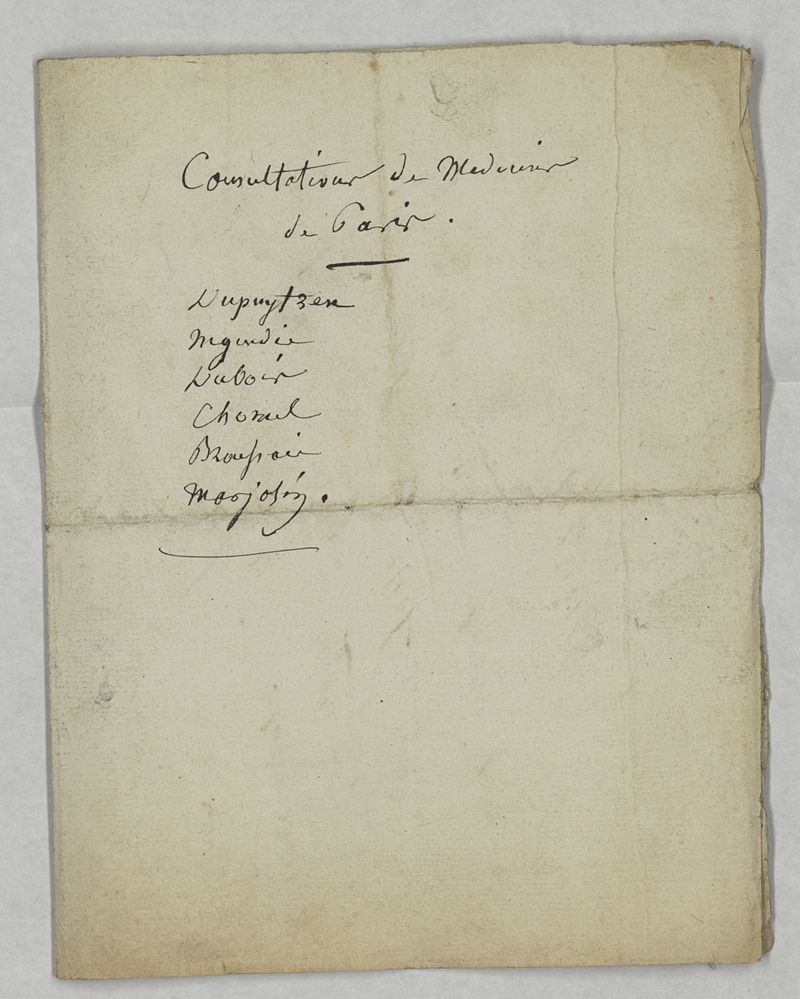 Consultations de Medecins
de Paris.
Dupuytren
Magendie
Dubois
Chomel
Broussais
Marjolin.